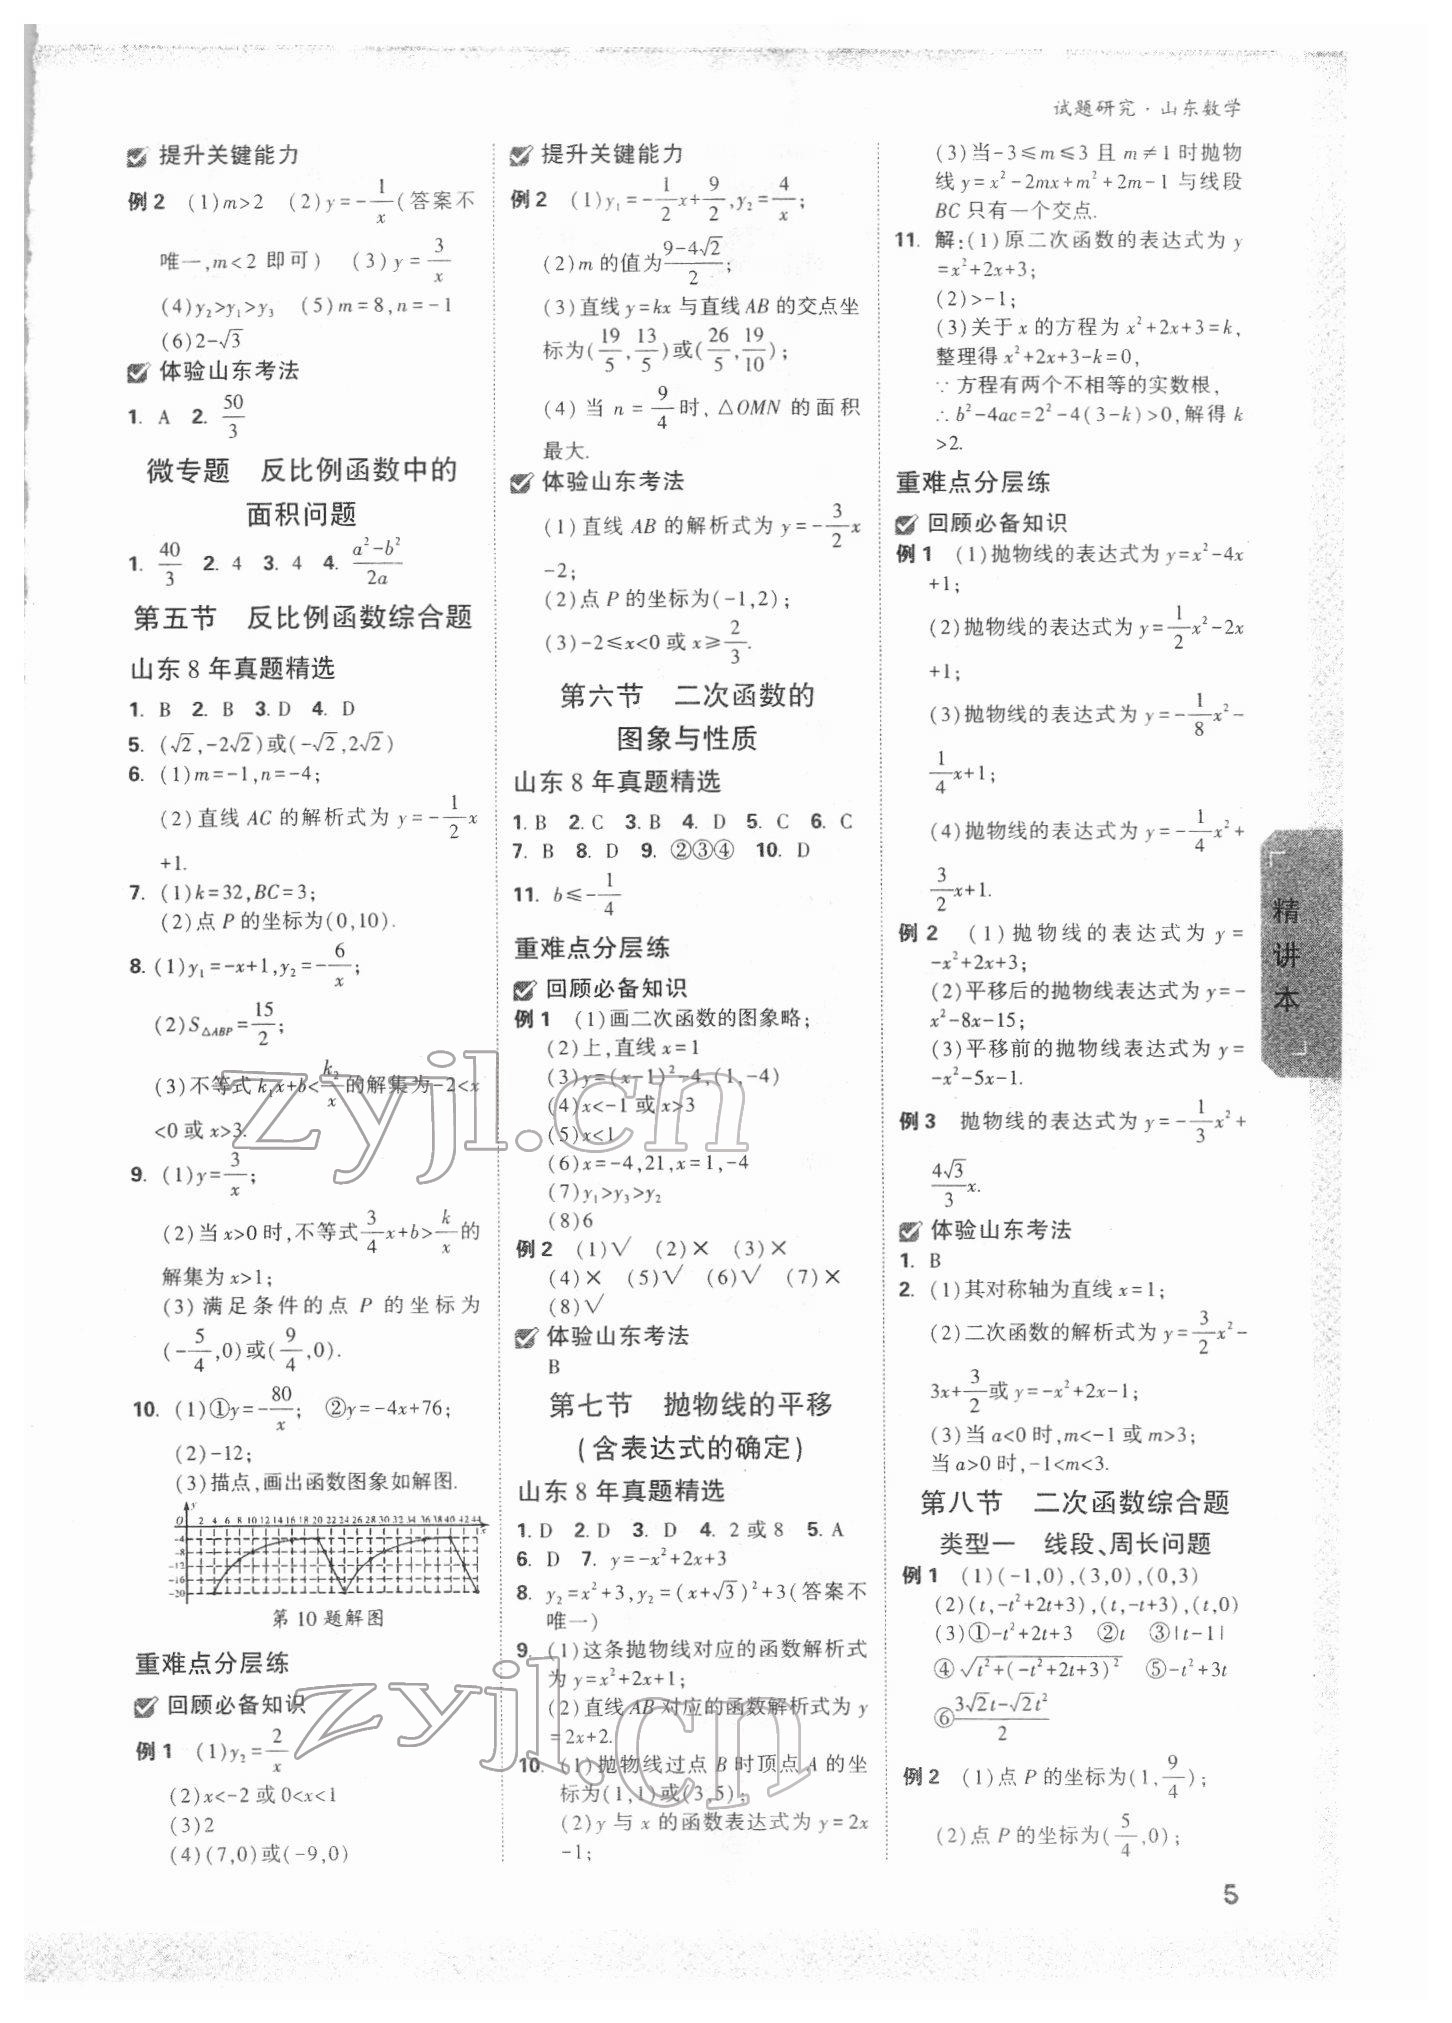 试题研究·山东数学
提升关键能力
例2 (1)m>2 (2)y=-1/x(答案不
唯一,m<2 即可) (3)y=3/x
(4)y₂>y₁>y₃ (5)m=8,n=-1
(6)2-√3
体验山东考法
1. A 2. 50/3
微专题 反比例函数中的
面积问题
1. 40/3 2. 4 3. 4 4. (a²-b²)/2a
第五节 反比例函数综合题
山东8年真题精选
1. B 2. B 3. D 4. D
5. (√2,-2√2)或(-√2,2√2)
6. (1)m=-1,n=-4;
(2)直线 AC 的解析式为 y=-1/2x
+1.
7. (1)k=32,BC=3;
(2)点 P 的坐标为(0,10).
8. (1)y₁=-x+1,y₂=-6/x;
(2)S△ABP=15/2;
(3)不等式 k₁x+b<k₂/x的解集为-2<x
<0 或 x>3.
9. (1)y=3/x;
(2)当 x>0 时,不等式3/4x+b>k/x的
解集为 x>1;
(3)满足条件的点 P 的坐标为
(-5/4,0)或(9/4,0).
10. (1)①y=-80/x; ②y=-4x+76;
(2)-12;
(3)描点,画出函数图象如解图.
y
O 2 4 6 8 10 12 14 16 18 20 22 24 26 28 30 32 34 36 38 40 42 44 x
-4
-8
-12
-16
-20
第10题解图
重难点分层练
回顾必备知识
例1 (1)y₂=2/x
(2)x<-2 或 0<x<1
(3)2
(4)(7,0)或(-9,0)
提升关键能力
例2 (1)y₁=-1/2x+9/2,y₂=4/x;
(2)m 的值为(9-4√2)/2;
(3)直线 y=kx 与直线 AB 的交点坐
标为(19/5,13/5)或(26/5,19/10);
(4)当 n=9/4时,△OMN 的面积
最大.
体验山东考法
(1)直线 AB 的解析式为 y=-3/2x
-2;
(2)点 P 的坐标为(-1,2);
(3)-2≤x<0 或 x≥2/3.
第六节 二次函数的
图象与性质
山东8年真题精选
1. B 2. C 3. B 4. D 5. C 6. C
7. B 8. D 9. ②③④ 10. D
11. b≤-1/4
重难点分层练
回顾必备知识
例1 (1)画二次函数的图象略;
(2)上,直线 x=1
(3)y=(x-1)²-4,(1,-4)
(4)x<-1 或 x>3
(5)x<1
(6)x=-4,21,x=1,-4
(7)y₁>y₃>y₂
(8)6
例2 (1)√ (2)× (3)×
(4)× (5)√ (6)√ (7)×
(8)√
体验山东考法
B
第七节 抛物线的平移
(含表达式的确定)
山东8年真题精选
1. D 2. D 3. D 4. 2或8 5. A
6. D 7. y=-x²+2x+3
8. y₂=x²+3,y₂=(x+√3)²+3(答案不
唯一)
9. (1)这条抛物线对应的函数解析式
为 y=x²+2x+1;
(2)直线 AB 对应的函数解析式为 y
=2x+2.
10. (1)抛物线过点 B 时顶点 A 的坐
标为(1,1)或(3,5);
(2)y 与 x 的函数表达式为 y=2x
-1;
(3)当-3≤m≤3 且 m≠1 时抛物
线 y=x²-2mx+m²+2m-1 与线段
BC 只有一个交点.
11. 解:(1)原二次函数的表达式为 y
=x²+2x+3;
(2)>-1;
(3)关于 x 的方程为 x²+2x+3=k,
整理得 x²+2x+3-k=0,
∵方程有两个不相等的实数根,
∴b²-4ac=2²-4(3-k)>0,解得 k
>2.
重难点分层练
回顾必备知识
例1 (1)抛物线的表达式为 y=x²-4x
+1;
(2)抛物线的表达式为 y=1/2x²-2x
+1;
(3)抛物线的表达式为 y=-1/8x²-
1/4x+1;
(4)抛物线的表达式为 y=-1/4x²+
3/2x+1.
例2 (1)抛物线的表达式为 y=
-x²+2x+3;
(2)平移后的抛物线表达式为 y=-
x²-8x-15;
(3)平移前的抛物线表达式为 y=
-x²-5x-1.
例3 抛物线的表达式为 y=-1/3x²+
4√3/3x.
体验山东考法
1. B
2. (1)其对称轴为直线 x=1;
(2)二次函数的解析式为 y=3/2x²-
3x+3/2或 y=-x²+2x-1;
(3)当 a<0 时,m<-1 或 m>3;
当 a>0 时,-1<m<3.
第八节 二次函数综合题
类型一 线段、周长问题
例1 (1)(-1,0),(3,0),(0,3)
(2)(t,-t²+2t+3),(t,-t+3),(t,0)
(3)①-t²+2t+3 ②t ③|t-1|
④√(t²+(-t²+2t+3)²) ⑤-t²+3t
⑥(3√2t-√2t²)/2
例2 (1)点 P 的坐标为(1,9/4);
(2)点 P 的坐标为(5/4,0);
精讲本
5
zyjl.cn
zyjl.cn